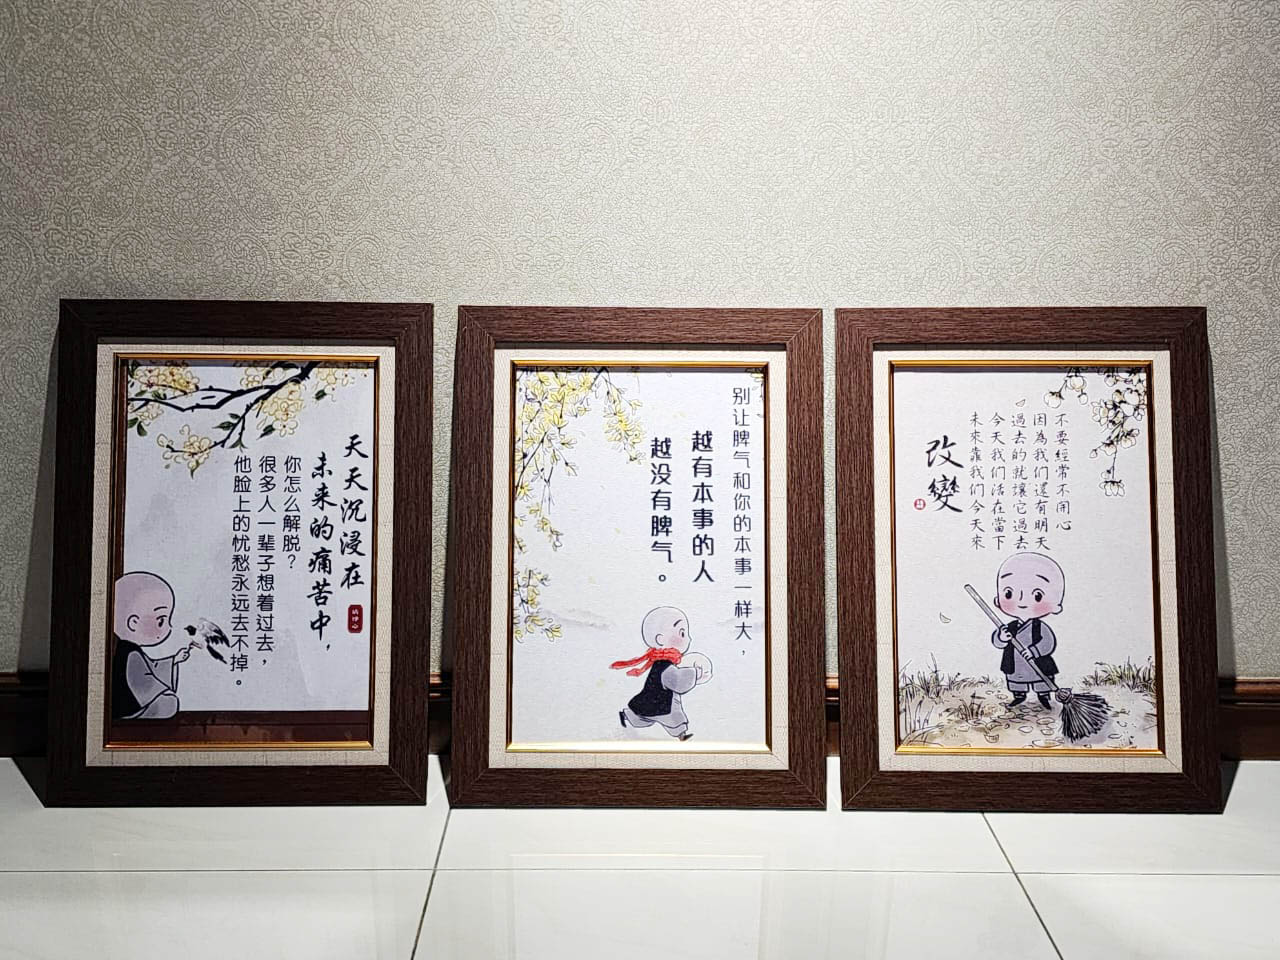 天天沉浸在
未来的痛苦中，
你怎么解脱？
很多人一辈子想着过去，
他脸上的忧愁永远去不掉。
别让脾气和你的本事一样大，
越有本事的人
越没有脾气。
不要經常不開心
因為我们還有明天
過去的就讓它過去
今天我们活在當下
未來靠我们今天來
改變